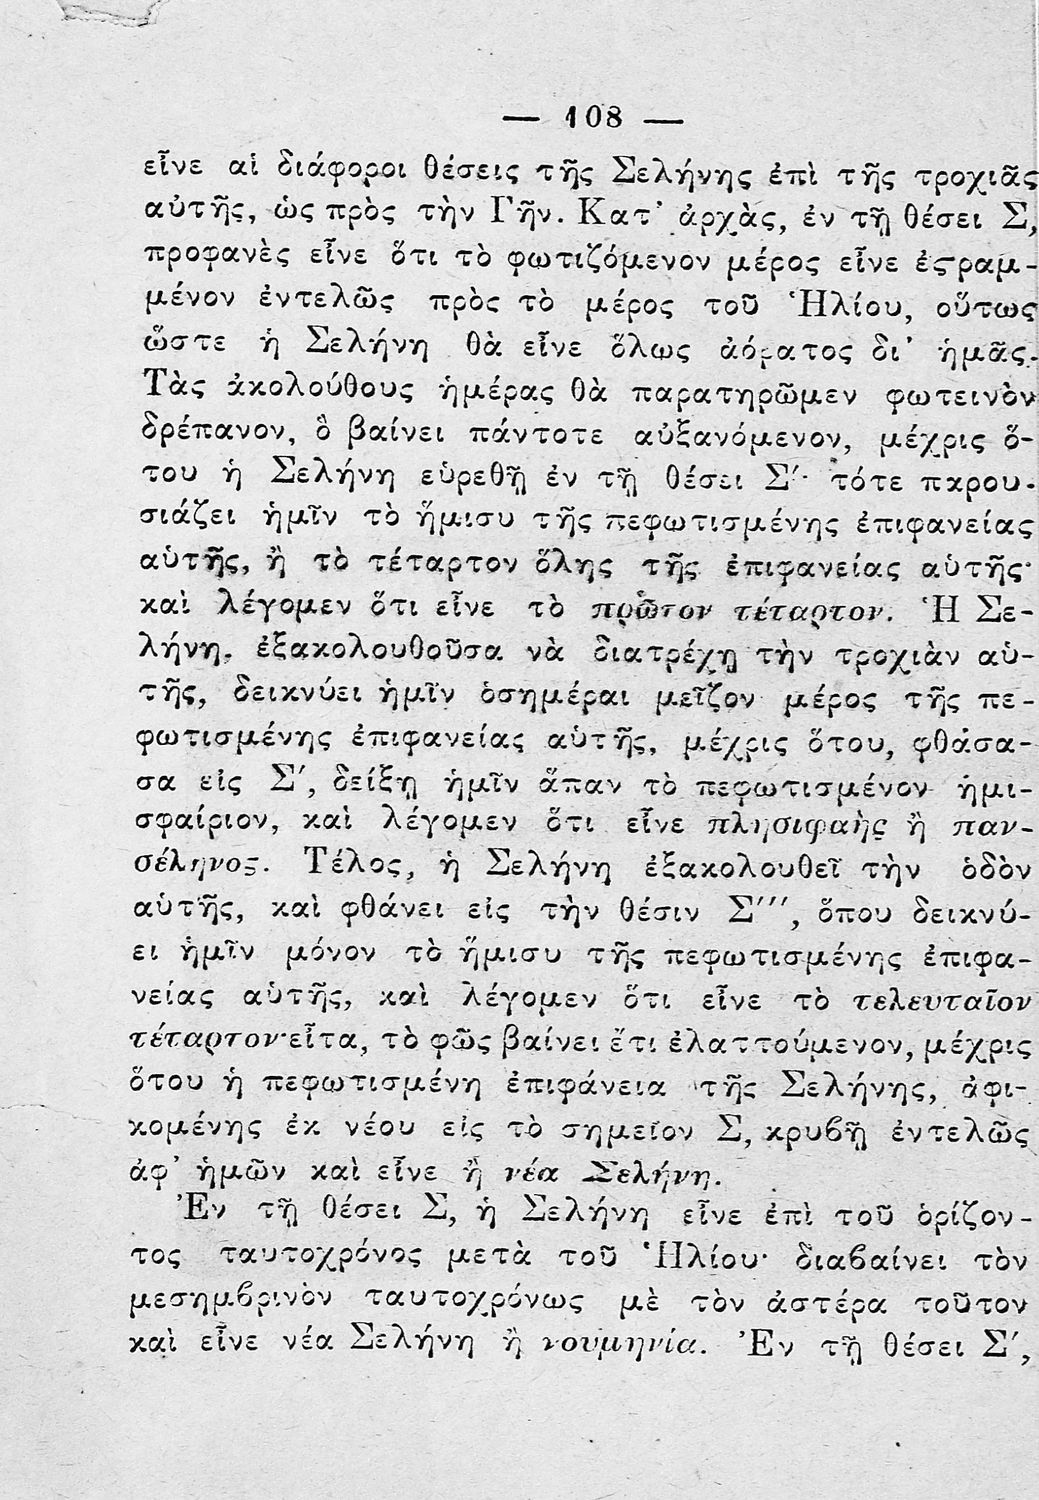 — 108 —
εἶνε αἱ διάφοροι θέσεις τῆς Σελήνης ἐπὶ τῆς τροχιᾶς
αὐτῆς, ὡς πρὸς τὴν Γῆν. Κατ’ ἀρχὰς, ἐν τῇ θέσει Σ,
προφανὲς εἶνε ὅτι τὸ φωτιζόμενον μέρος εἶνε ἐςραμ-
μένον ἐντελῶς πρὸς τὸ μέρος τοῦ Ἡλίου, οὕτως
ὥστε ἡ Σελήνη θὰ εἶνε ὅλως ἀόρατος δι’ ἡμᾶς.
Τὰς ἀκολούθους ἡμέρας θὰ παρατηρῶμεν φωτεινὸν
δρέπανον, ὃ βαίνει πάντοτε αὐξανόμενον, μέχρις ὅ-
του ἡ Σελήνη εὑρεθῇ ἐν τῇ θέσει Σ′· τότε παρου-
σιάζει ἡμῖν τὸ ἥμισυ τῆς πεφωτισμένης ἐπιφανείας
αὑτῆς, ἢ τὸ τέταρτον ὅλης τῆς ἐπιφανείας αὑτῆς·
καὶ λέγομεν ὅτι εἶνε τὸ πρῶτον τέταρτον. Ἡ Σε-
λήνη, ἐξακολουθοῦσα νὰ διατρέχῃ τὴν τροχιὰν αὑ-
τῆς, δεικνύει ἡμῖν ὁσημέραι μεῖζον μέρος τῆς πε-
φωτισμένης ἐπιφανείας αὑτῆς, μέχρις ὅτου, φθάσα-
σα εἰς Σ′, δείξῃ ἡμῖν ἅπαν τὸ πεφωτισμένον ἡμι-
σφαίριον, καὶ λέγομεν ὅτι εἶνε πλησιφαὴς ἢ παν-
σέληνος. Τέλος, ἡ Σελήνη ἐξακολουθεῖ τὴν ὁδὸν
αὑτῆς, καὶ φθάνει εἰς τὴν θέσιν Σ′′′, ὅπου δεικνύ-
ει ἡμῖν μόνον τὸ ἥμισυ τῆς πεφωτισμένης ἐπιφα-
νείας αὑτῆς, καὶ λέγομεν ὅτι εἶνε τὸ τελευταῖον
τέταρτον· εἶτα, τὸ φῶς βαίνει ἔτι ἐλαττούμενον, μέχρις
ὅτου ἡ πεφωτισμένη ἐπιφάνεια τῆς Σελήνης, ἀφι-
κομένης ἐκ νέου εἰς τὸ σημεῖον Σ, κρυβῇ ἐντελῶς
ἀφ’ ἡμῶν καὶ εἶνε ἢ νέα Σελήνη.
Ἐν τῇ θέσει Σ, ἡ Σελήνη εἶνε ἐπὶ τοῦ ὁρίζον-
τος ταυτοχρόνος μετὰ τοῦ Ἡλίου· διαβαίνει τὸν
μεσημβρινὸν ταυτοχρόνως μὲ τὸν ἀστέρα τοῦτον
καὶ εἶνε νέα Σελήνη ἢ νουμηνία. Ἐν τῇ θέσει Σ′,